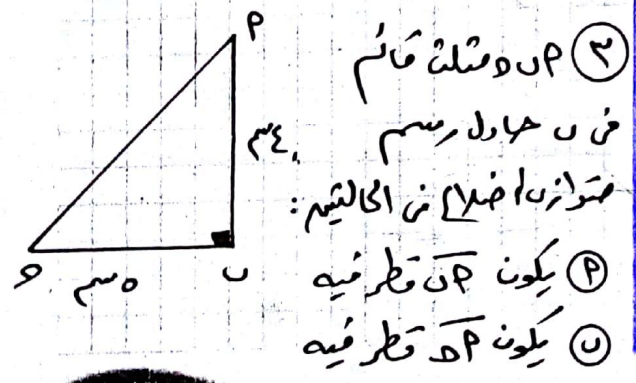 ٣ م ب ح مثلث قائم
فى ب حاول رسم
متوازى اضلاع فى الحالتين:
م يكون م ب قطر فيه
ب يكون م ح قطر فيه
م
٤ سم
ب
٥ سم
ح